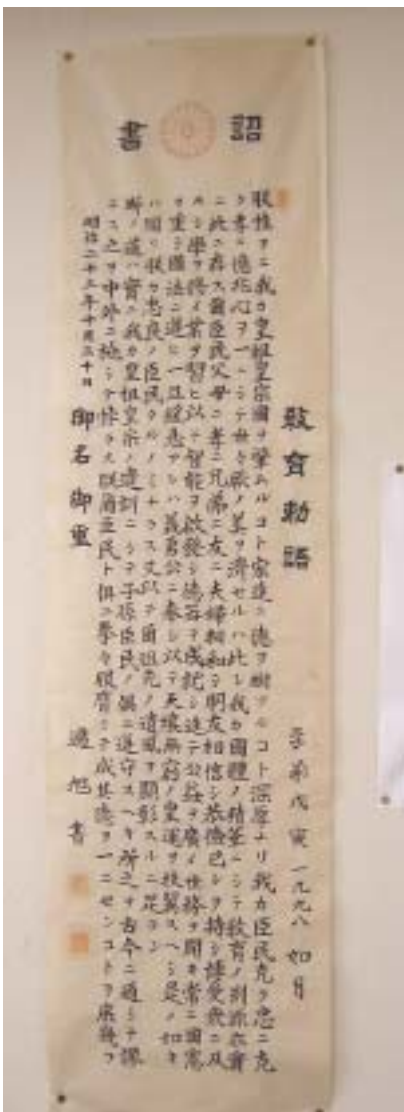 詔書
教育勅語
平成戊寅 一九九八 如月
朕惟フニ我カ皇祖皇宗國ヲ肇ムルコト宏遠ニ德ヲ樹ツルコト深厚ナリ我カ臣民克ク忠ニ克
ク孝ニ億兆心ヲ一ニシテ世々厥ノ美ヲ濟セルハ此レ我カ國體ノ精華ニシテ教育ノ淵源亦實
ニ此ニ存ス爾臣民父母ニ孝ニ兄弟ニ友ニ夫婦相和シ朋友相信シ恭儉己レヲ持シ博愛衆ニ及
ホシ學ヲ修メ業ヲ習ヒ以テ智能ヲ啓發シ德器ヲ成就シ進テ公益ヲ廣メ世務ヲ開キ常ニ國憲
ヲ重シ國法ニ遵ヒ一旦緩急アレハ義勇公ニ奉シ以テ天壤無窮ノ皇運ヲ扶翼スヘシ是ノ如キ
ハ獨リ朕カ忠良ノ臣民タルノミナラス又以テ爾祖先ノ遺風ヲ顯彰スルニ足ラン
斯ノ道ハ實ニ我カ皇祖皇宗ノ遺訓ニシテ子孫臣民ノ俱ニ遵守スヘキ所之ヲ古今ニ通シテ謬
ラス之ヲ中外ニ施シテ悖ラス朕爾臣民ト俱ニ拳々服膺シテ咸其德ヲ一ニセンコトヲ庶幾フ
明治二十三年十月三十日
御名 御璽
旭書